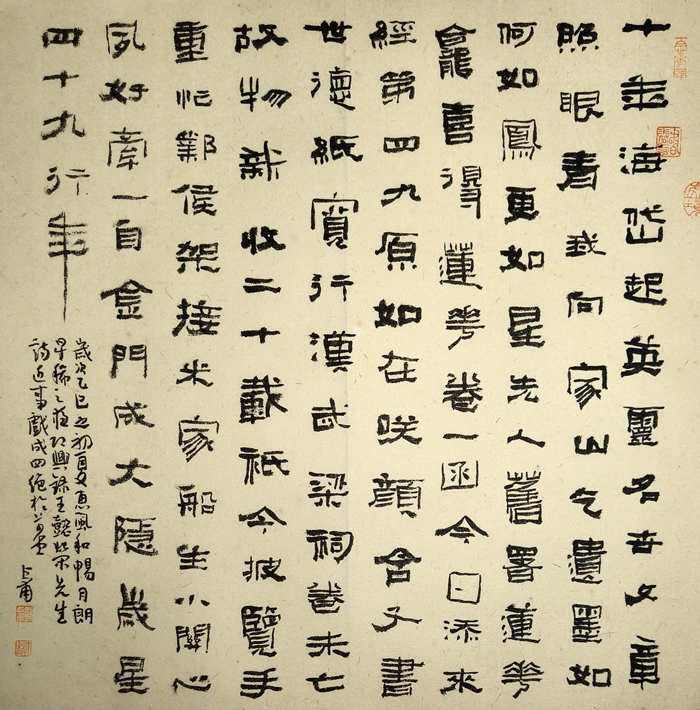 十年海岱起英靈名世文章
照眼青我向家山乞遺墨如
何如鳳更如星先人舊署蓮花
龕喜得蓮花卷一函今日添來
經第四九原如在咲顔含書
世德紙寶行漢武梁祠畫未亡
故物新收二十載祇今披覽手
重忙鄴侯架接米家船生小關心
夙好牽一自金門成大隱歲星
四十九行年
歲次乙巳之初夏惠風和暢日朗
興錄王懿榮先生
詩近事戲成四絕於